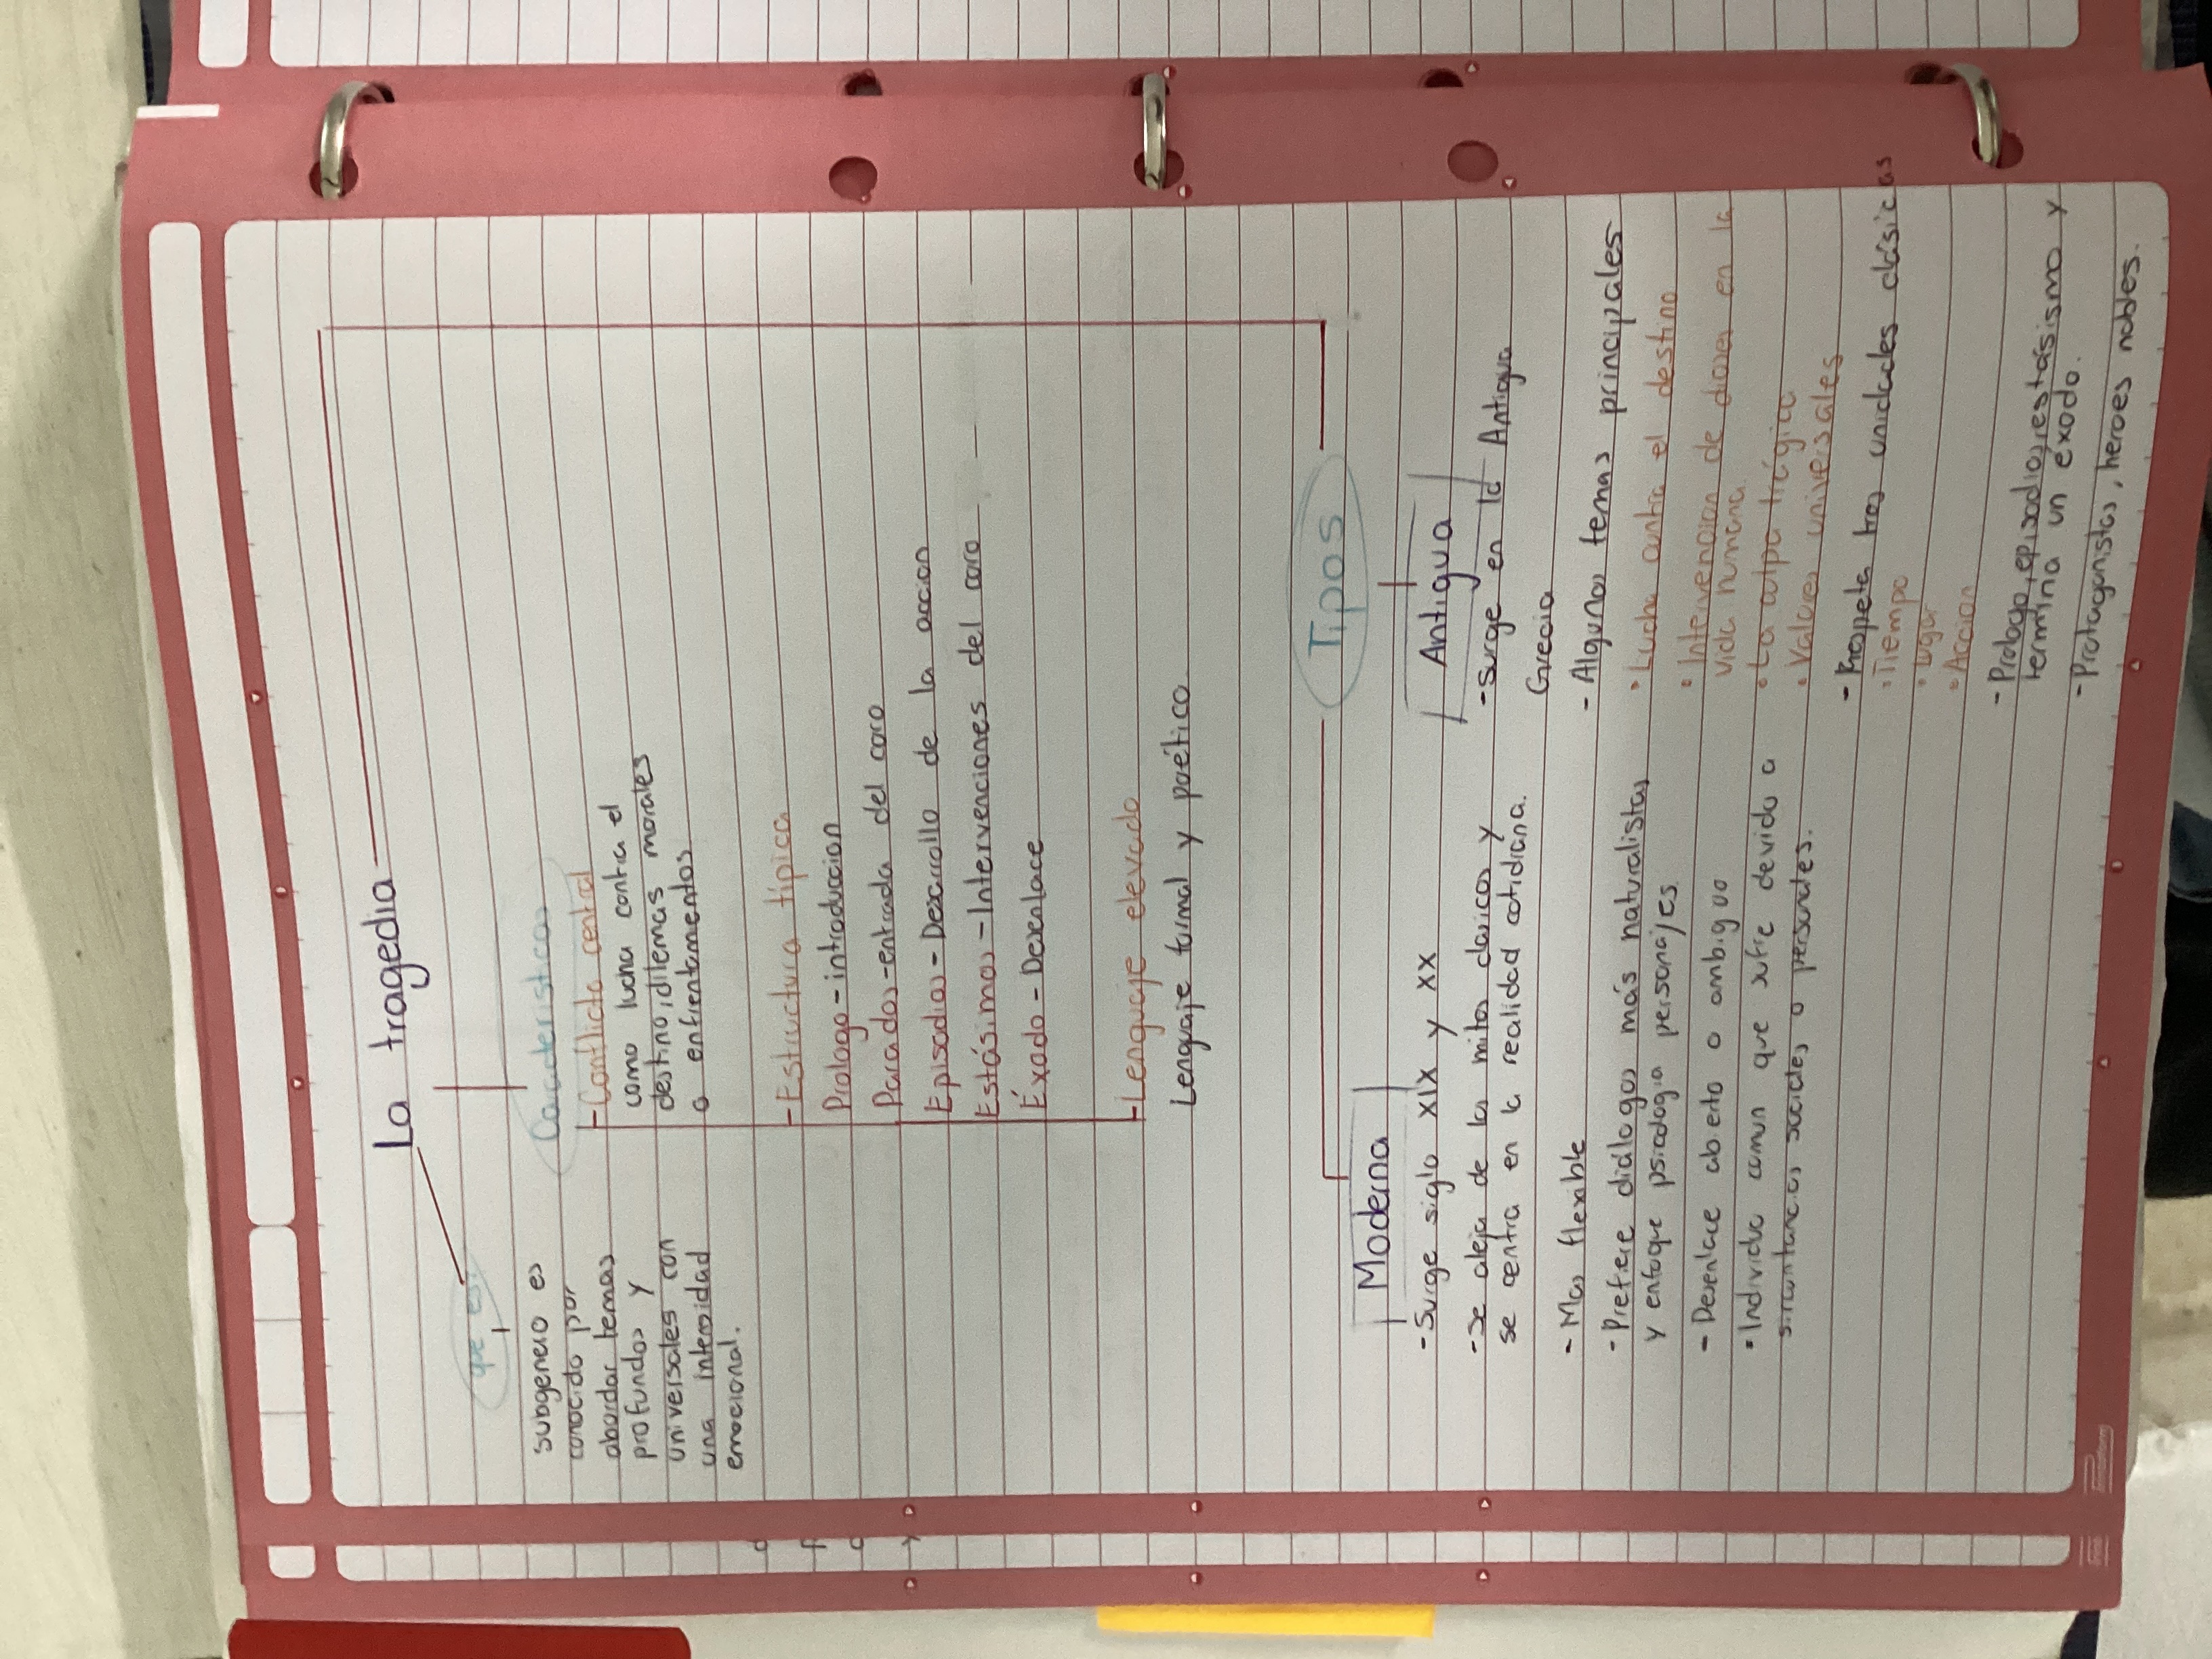 La tragedia
que es?
subgenero es
conocido por
abordar temas
profundos y
universales con
una intensidad
emocional.
Caracteristicas
- Conflicto central
como lucha contra el
destino, dilemas morales
o enfrentamientos
- Estructura típica
Prologo - introduccion
Parados - entrada del coro
Episodios - Desarrollo de la accion
Estásimos - Intervenciones del coro
Éxodo - Desenlace
- Lenguaje elevado
Lenguaje formal y poético
Tipos
Moderna
- Surge siglo XIX y XX
- Se aleja de los mitos clasicos y
se centra en la realidad cotidiana.
- Mas flexible
- Prefiere diálogos más naturalistas
y enfoque psicologia personajes.
- Desenlace abierto o ambiguo
- Individuo comun que sufre devido a
circuntancias sociales o personales.
Antigua
- Surge en la Antigua
Grecia
- Algunos temas principales
• Lucha contra el destino
• Intervencion de dioses en la
vida humana.
• La culpa trágica
• Valores universales
- Respeta tres unidades clásicas
• Tiempo
• lugar
• Accion
- Prologo, episodios, estásismo y
termina un éxodo.
- Protagonistas, heroes nobles.